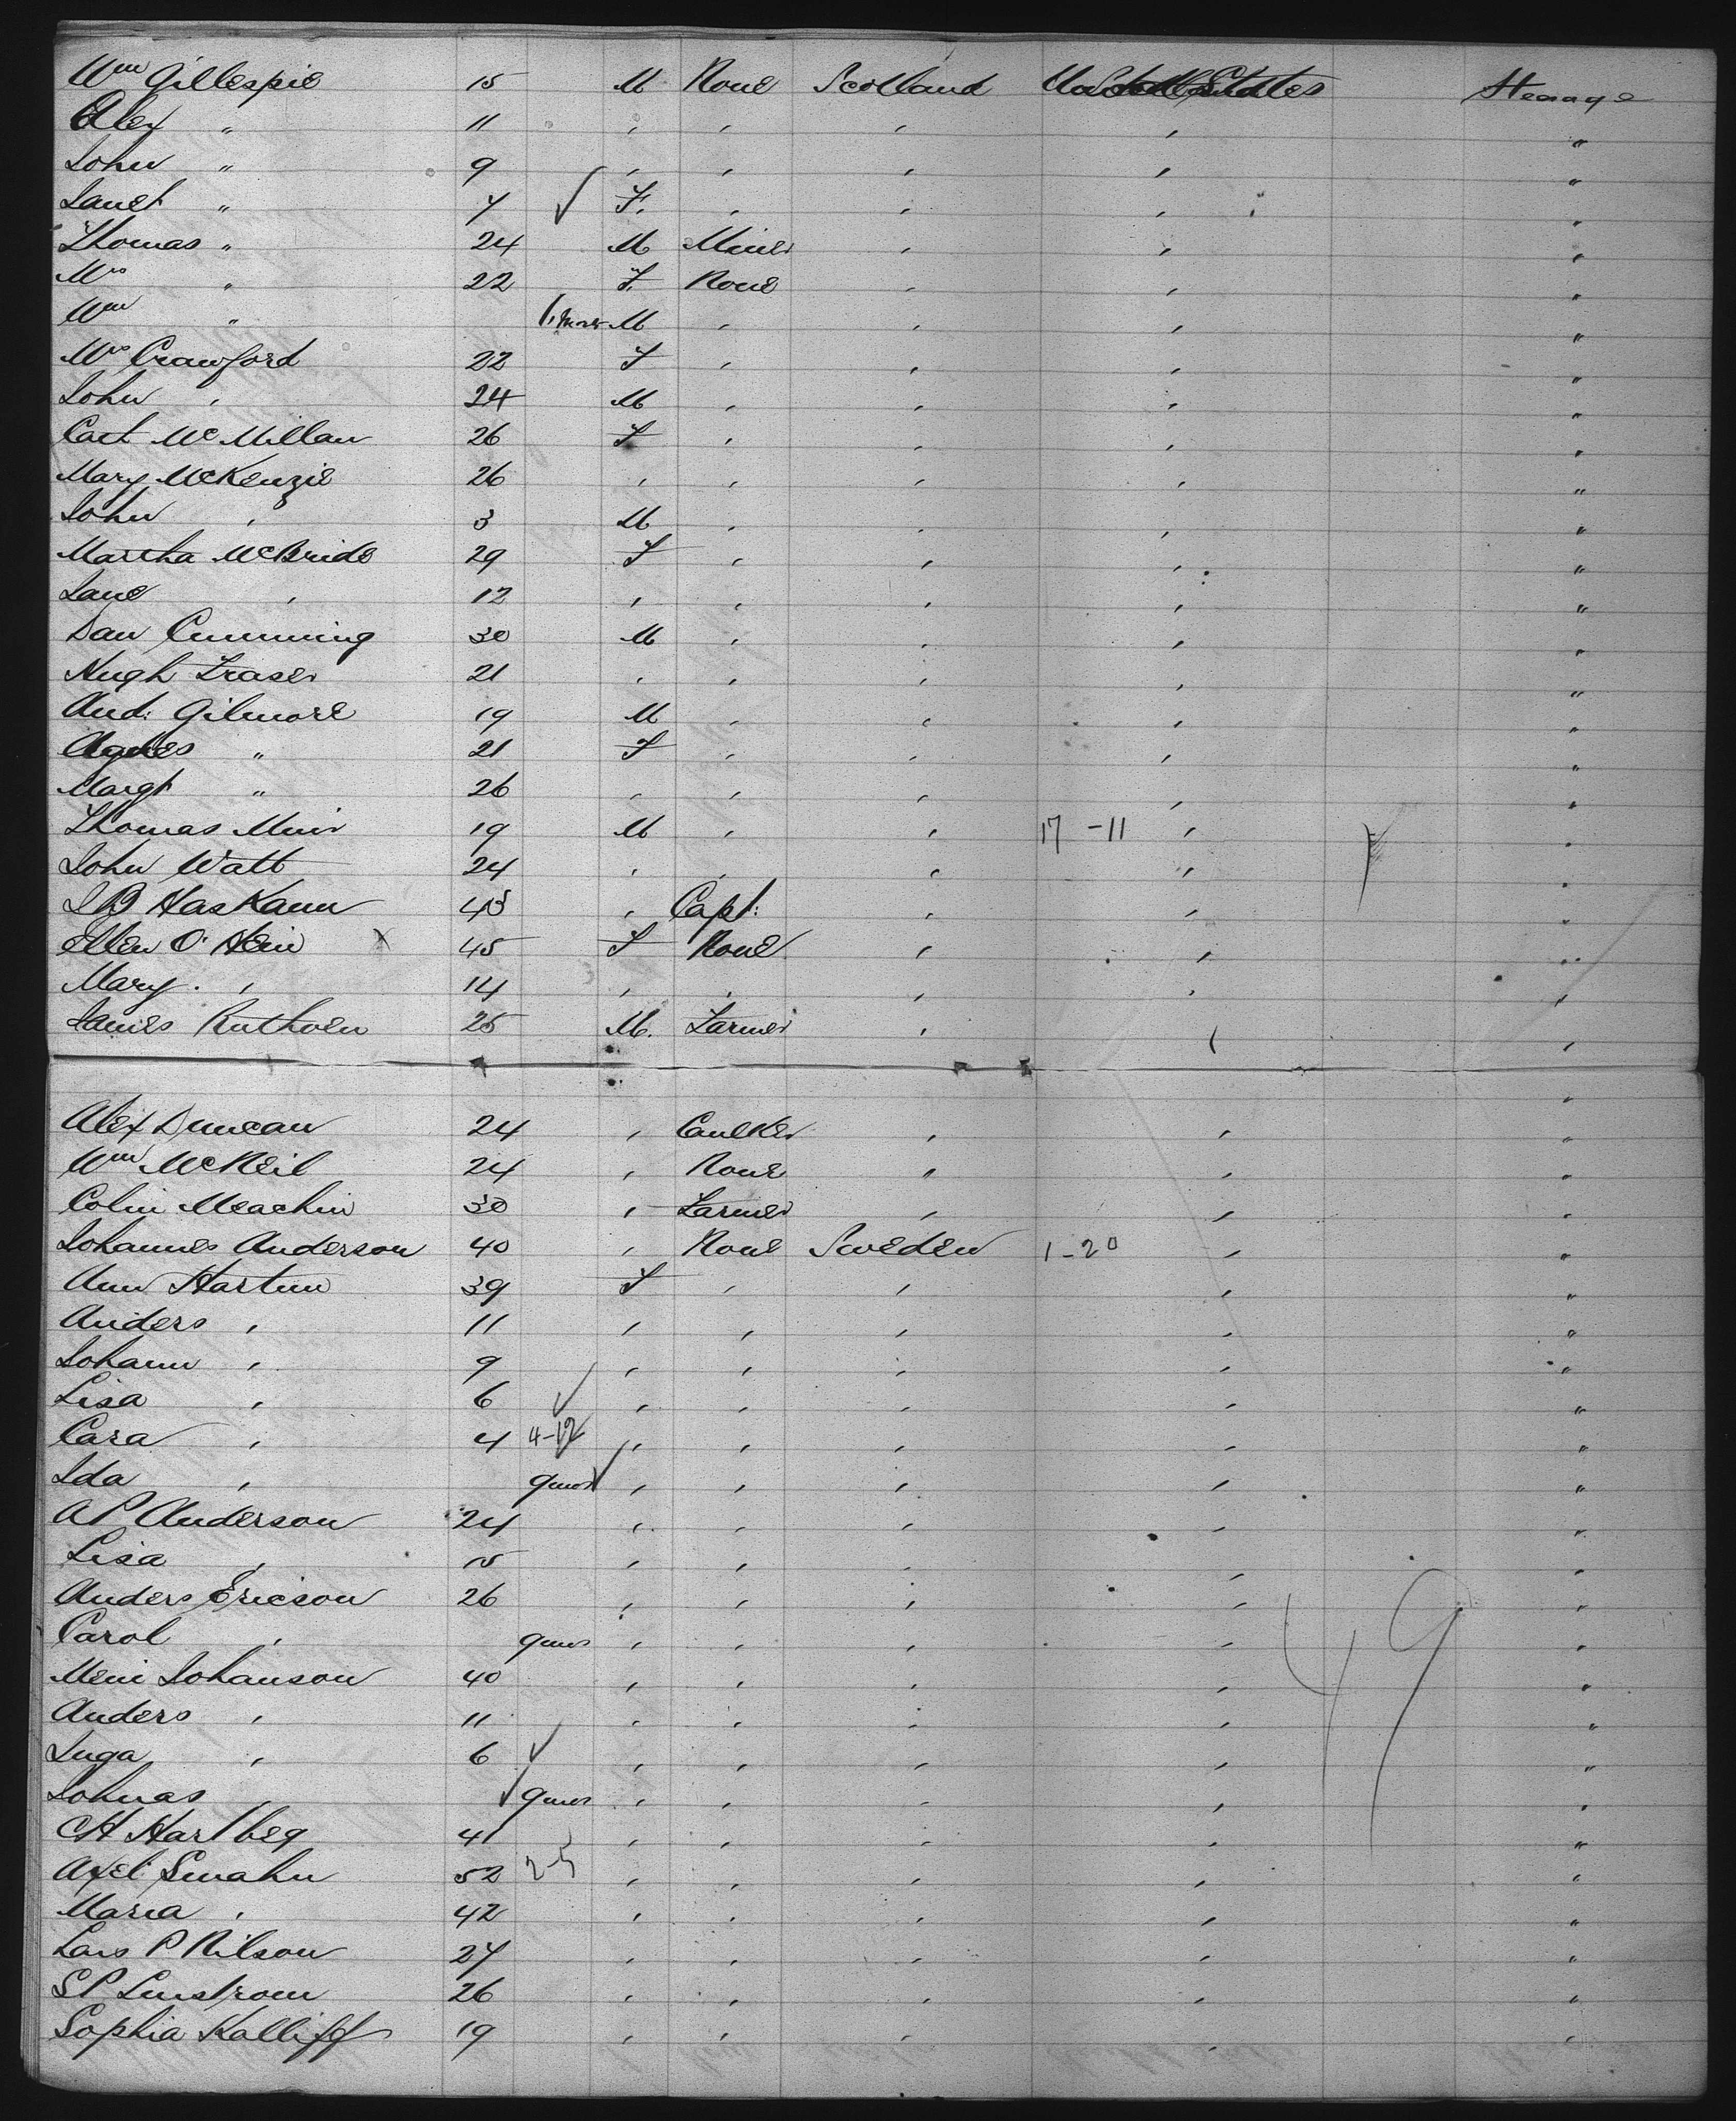 Wm Gillespie 15 M None Scotland United States Steerage
Alex " 11 , , , , "
John " 9 , , , , "
Janet " 4 ✓ F. , , , "
Thomas " 24 M Miner , , "
Mrs " 22 F. None , , "
Wm " M , , , "
Mrs Crawford 22 F , , , "
John , 24 M , , , "
Cart McMillan 26 F , , , "
Mary McKenzie 26 , , , , "
John , 3 M , , , "
Martha McBride 29 F , , , "
Jane , 12 , , , , "
Dan Cumming 30 M , , , "
Hugh Fraser 21 , , , , "
And: Gilmore 19 M , , , "
Agnes " 21 F , , , "
Margt " 26 , , , , "
Thomas Muir 19 M , , 17 - 11 , "
John Watt 24 , , , , "
J B Haskann , Capt: , , "
Ellen O'Hein x 45 F None , , "
Mary . , 14 , , , , ,
James Ruthven 25 M. Farmer , , ,
Alex Duncan 24 , Caulker , , "
Wm McNeil 24 , None " , "
Colin Meachin 30 , Farmer , , "
Johannes Anderson 40 , None Sweden 1-20 , "
Ann Hartun 39 F , , , "
Anders , 11 , , , , "
Johann , 9 , , , , "
Lisa , 6 ✓ , , , , "
Cara , 4 4-12 , , , , "
Ida , 9mos ✓ , , , , "
A P Anderson 24 , , , , "
Lisa , 15 , , , , "
Anders Ericson 26 , , , , "
Carol , 9mos , , , , "
Meni Johanson 40 , , , , "
Anders , 11 , , , , "
Inga , 6 ✓ , , , , "
Johnas , ✓ 9mos , , , , "
C H Hartberg 41 , , , , "
Axel Smahn 52 2-5 , , , , "
Maria , 42 , , , , "
Lars P Nilson 27 , , , , "
S P Linstrom 26 , , , , "
Sophia Kalliff 19 , , , , "
49